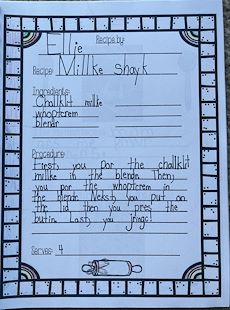 Ellie
Recipe by:
Recipe: Millke Snayk
Ingredients:
Challklit millke
whopterem
blendr
Procedure:
First, you por the challklit
millke in the blendr. Then,
you por the whopterem in
the blendr. Neksts you put on
the lid then you pres the
butin. Last, you jringc!
Serves: 4